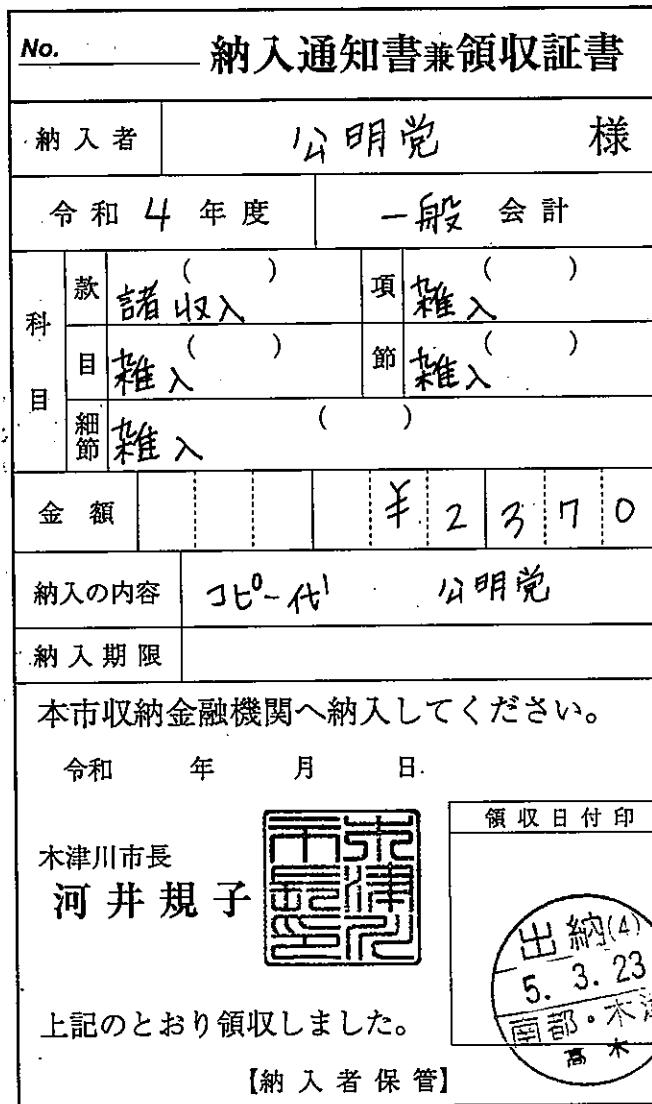 No.
納入通知書兼領収証書
納入者 公明党 様
令和 4 年度 一般 会計
科目
款 ( ) 諸収入 項 ( ) 雑入
目 ( ) 雑入 節 ( ) 雑入
細節 雑入 ( )
金額 ¥2370
納入の内容 コピー代 公明党
納入期限
本市収納金融機関へ納入してください。
令和 年 月 日
領収日付印
木津川市長
河井規子
木津川市長之印
出納(4)
5.3.23
南都・木津
高木
上記のとおり領収しました。
【納入者保管】